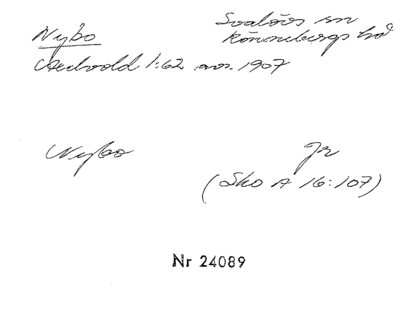 Nybo
Svalövs sn
Rönnebergs hd
Axelvold 1:62 avs. 1907
Nybo
Jr
(Sko A 16:107)
Nr 24089